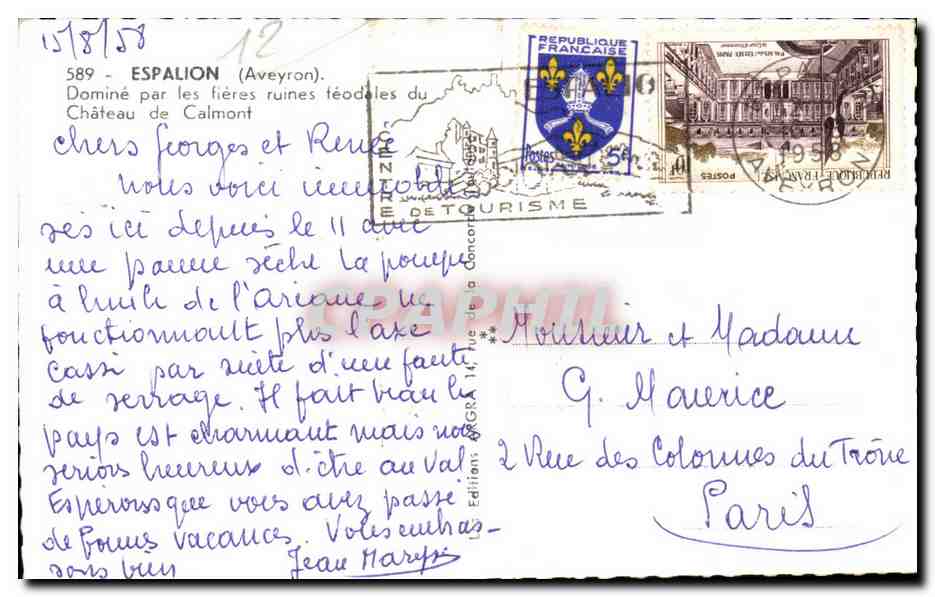 15/8/58
12
589 - ESPALION (Aveyron).
Dominé par les fières ruines féodales du
Château de Calmont
Chers Georges et Renée
Nous voici immobili
sés ici depuis le 11 avec
une panne sèche la pompe
à huile de l'Ariane ne
fonctionnait plus l'axe
cassé par suite d'une faute
de serrage. Il fait beau le
pays est charmant mais nous
serions heureux d'être au Val
Espérons que vous avez passé
de bonnes vacances. Vous embras-
sons bien
Jean Maryse
CENTRE
DE TOURISME
REPUBLIQUE
FRANCAISE
Postes 5f
POSTES
REPUBLIQUE FRANÇAISE
10f
1958
AVEYRON
Les Editions ARGRA 14, rue de la Concorde
**
CPAPHIL
Monsieur et Madame
G. Maurice
2 Rue des Colonnes du Trône
Paris